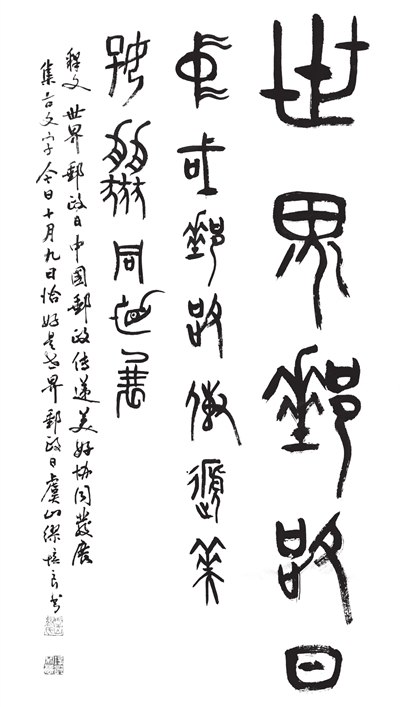 世界郵政日
中國郵政傳遞美
好協同發展
釋文 世界郵政日中國郵政传递美好協同發展
集古文字 今日十月九日恰好是世界郵政日虞山繆培良书